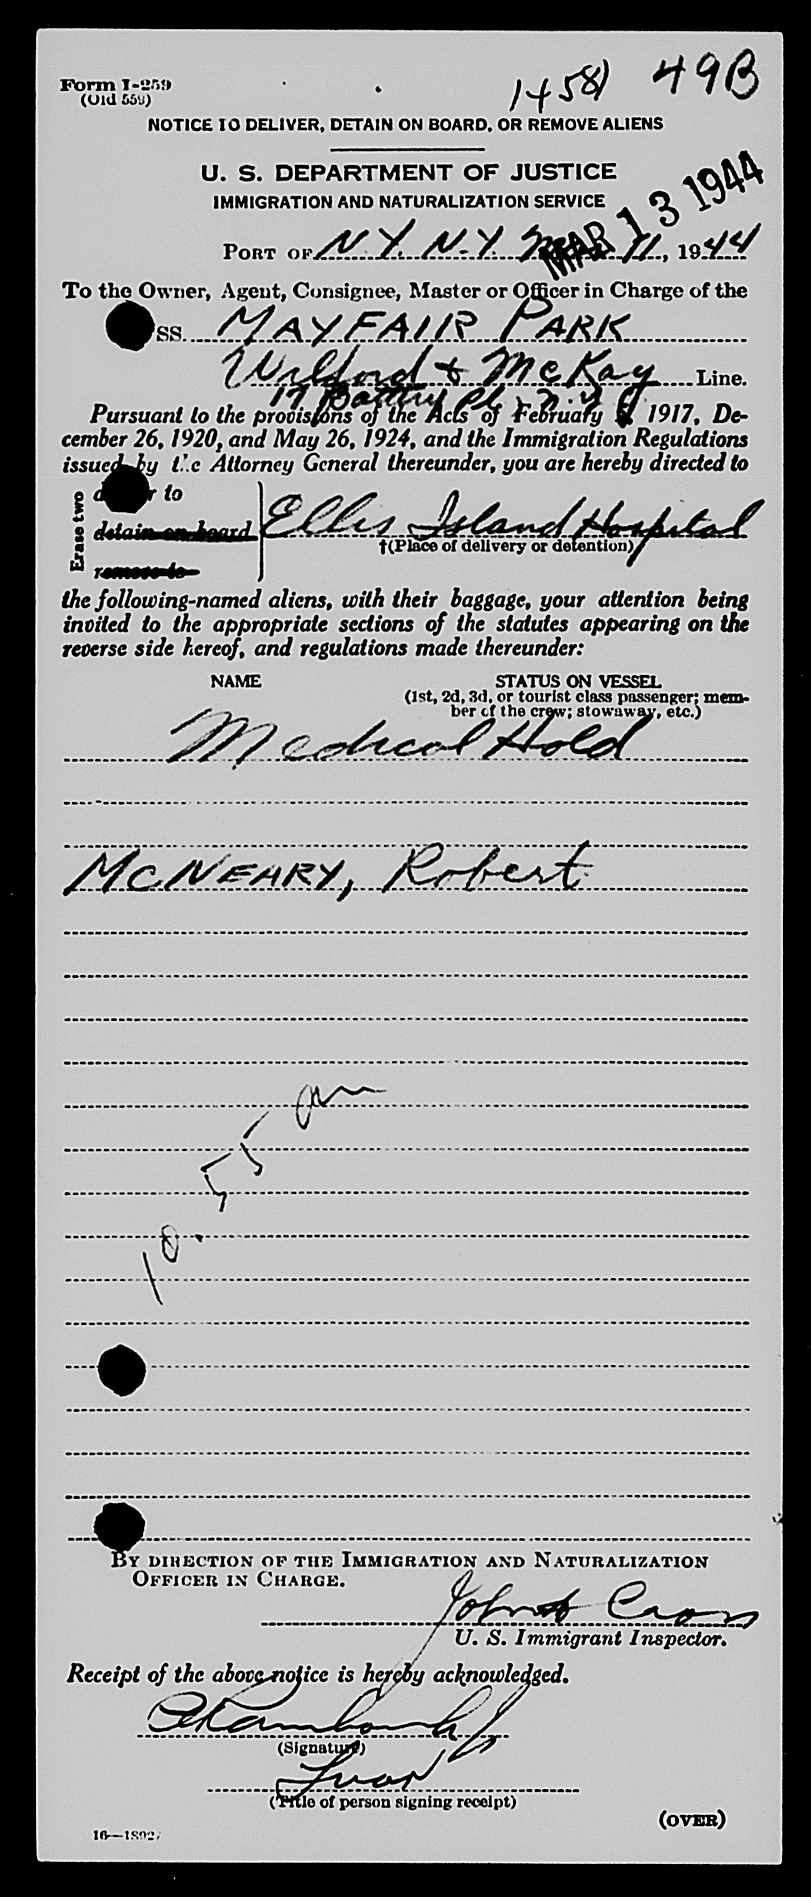 Form I-259
(Old 559)
1458/ 49B
NOTICE TO DELIVER, DETAIN ON BOARD, OR REMOVE ALIENS
U. S. DEPARTMENT OF JUSTICE
IMMIGRATION AND NATURALIZATION SERVICE
MAR 13 1944
PORT OF N.Y. N.Y. 11, 1944
To the Owner, Agent, Consignee, Master or Officer in Charge of the
SS. MAYFAIR PARK
Wilford & McKay Line.
17 Battery Pl. N.Y.
Pursuant to the provisions of the Acts of February 5, 1917, De-
cember 26, 1920, and May 26, 1924, and the Immigration Regulations
issued by the Attorney General thereunder, you are hereby directed to
Erase two
to
detain on board
remove to
Ellis Island Hospital
†(Place of delivery or detention)
the following-named aliens, with their baggage, your attention being
invited to the appropriate sections of the statutes appearing on the
reverse side hereof, and regulations made thereunder:
NAME STATUS ON VESSEL
(1st, 2d, 3d, or tourist class passenger; mem-
ber of the crew; stowaway, etc.)
Medical Hold
MCNEARY, Robert
10.55 am
BY DIRECTION OF THE IMMIGRATION AND NATURALIZATION
OFFICER IN CHARGE.
Cross
U. S. Immigrant Inspector.
Receipt of the above notice is hereby acknowledged.
(Signature)
(Title of person signing receipt)
(OVER)